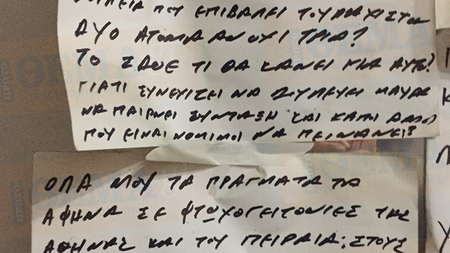 ΠΟΥ ΕΠΙΒΑΛΕΙ ΤΟΥΛΑΧΙΣΤΟΝ
ΔΥΟ ΑΤΟΜΑ ΑΝ ΟΥΧΙ ΤΡΙΑ?
ΤΟ ΤΙ ΘΑ ΚΑΝΕΙ ΓΙΑ ΑΥΤΟ?
ΓΙΑΤΙ ΣΥΝΕΧΙΖΕΙ ΝΑ ΔΟΥΛΕΥΕΙ ΜΑΥΡΑ
ΝΑ ΠΑΙΡΝΕΙ ΣΥΝΤΑΞΗ ΚΑΙ ΚΑΤΙ ΑΛΛΟΙ
ΠΟΥ ΕΙΝΑΙ ΝΟΜΙΜΟΙ ΝΑ ΠΕΙΝΑΝΕ?
ΟΛΑ ΜΟΥ ΤΑ ΠΡΑΓΜΑΤΑ ΤΑ
ΑΦΗΝΑ ΣΕ ΦΤΩΧΟΓΕΙΤΟΝΙΕΣ ΤΗΣ
ΑΘΗΝΑΣ ΚΑΙ ΤΟΥ ΠΕΙΡΑΙΑ; ΣΤΟΥΣ